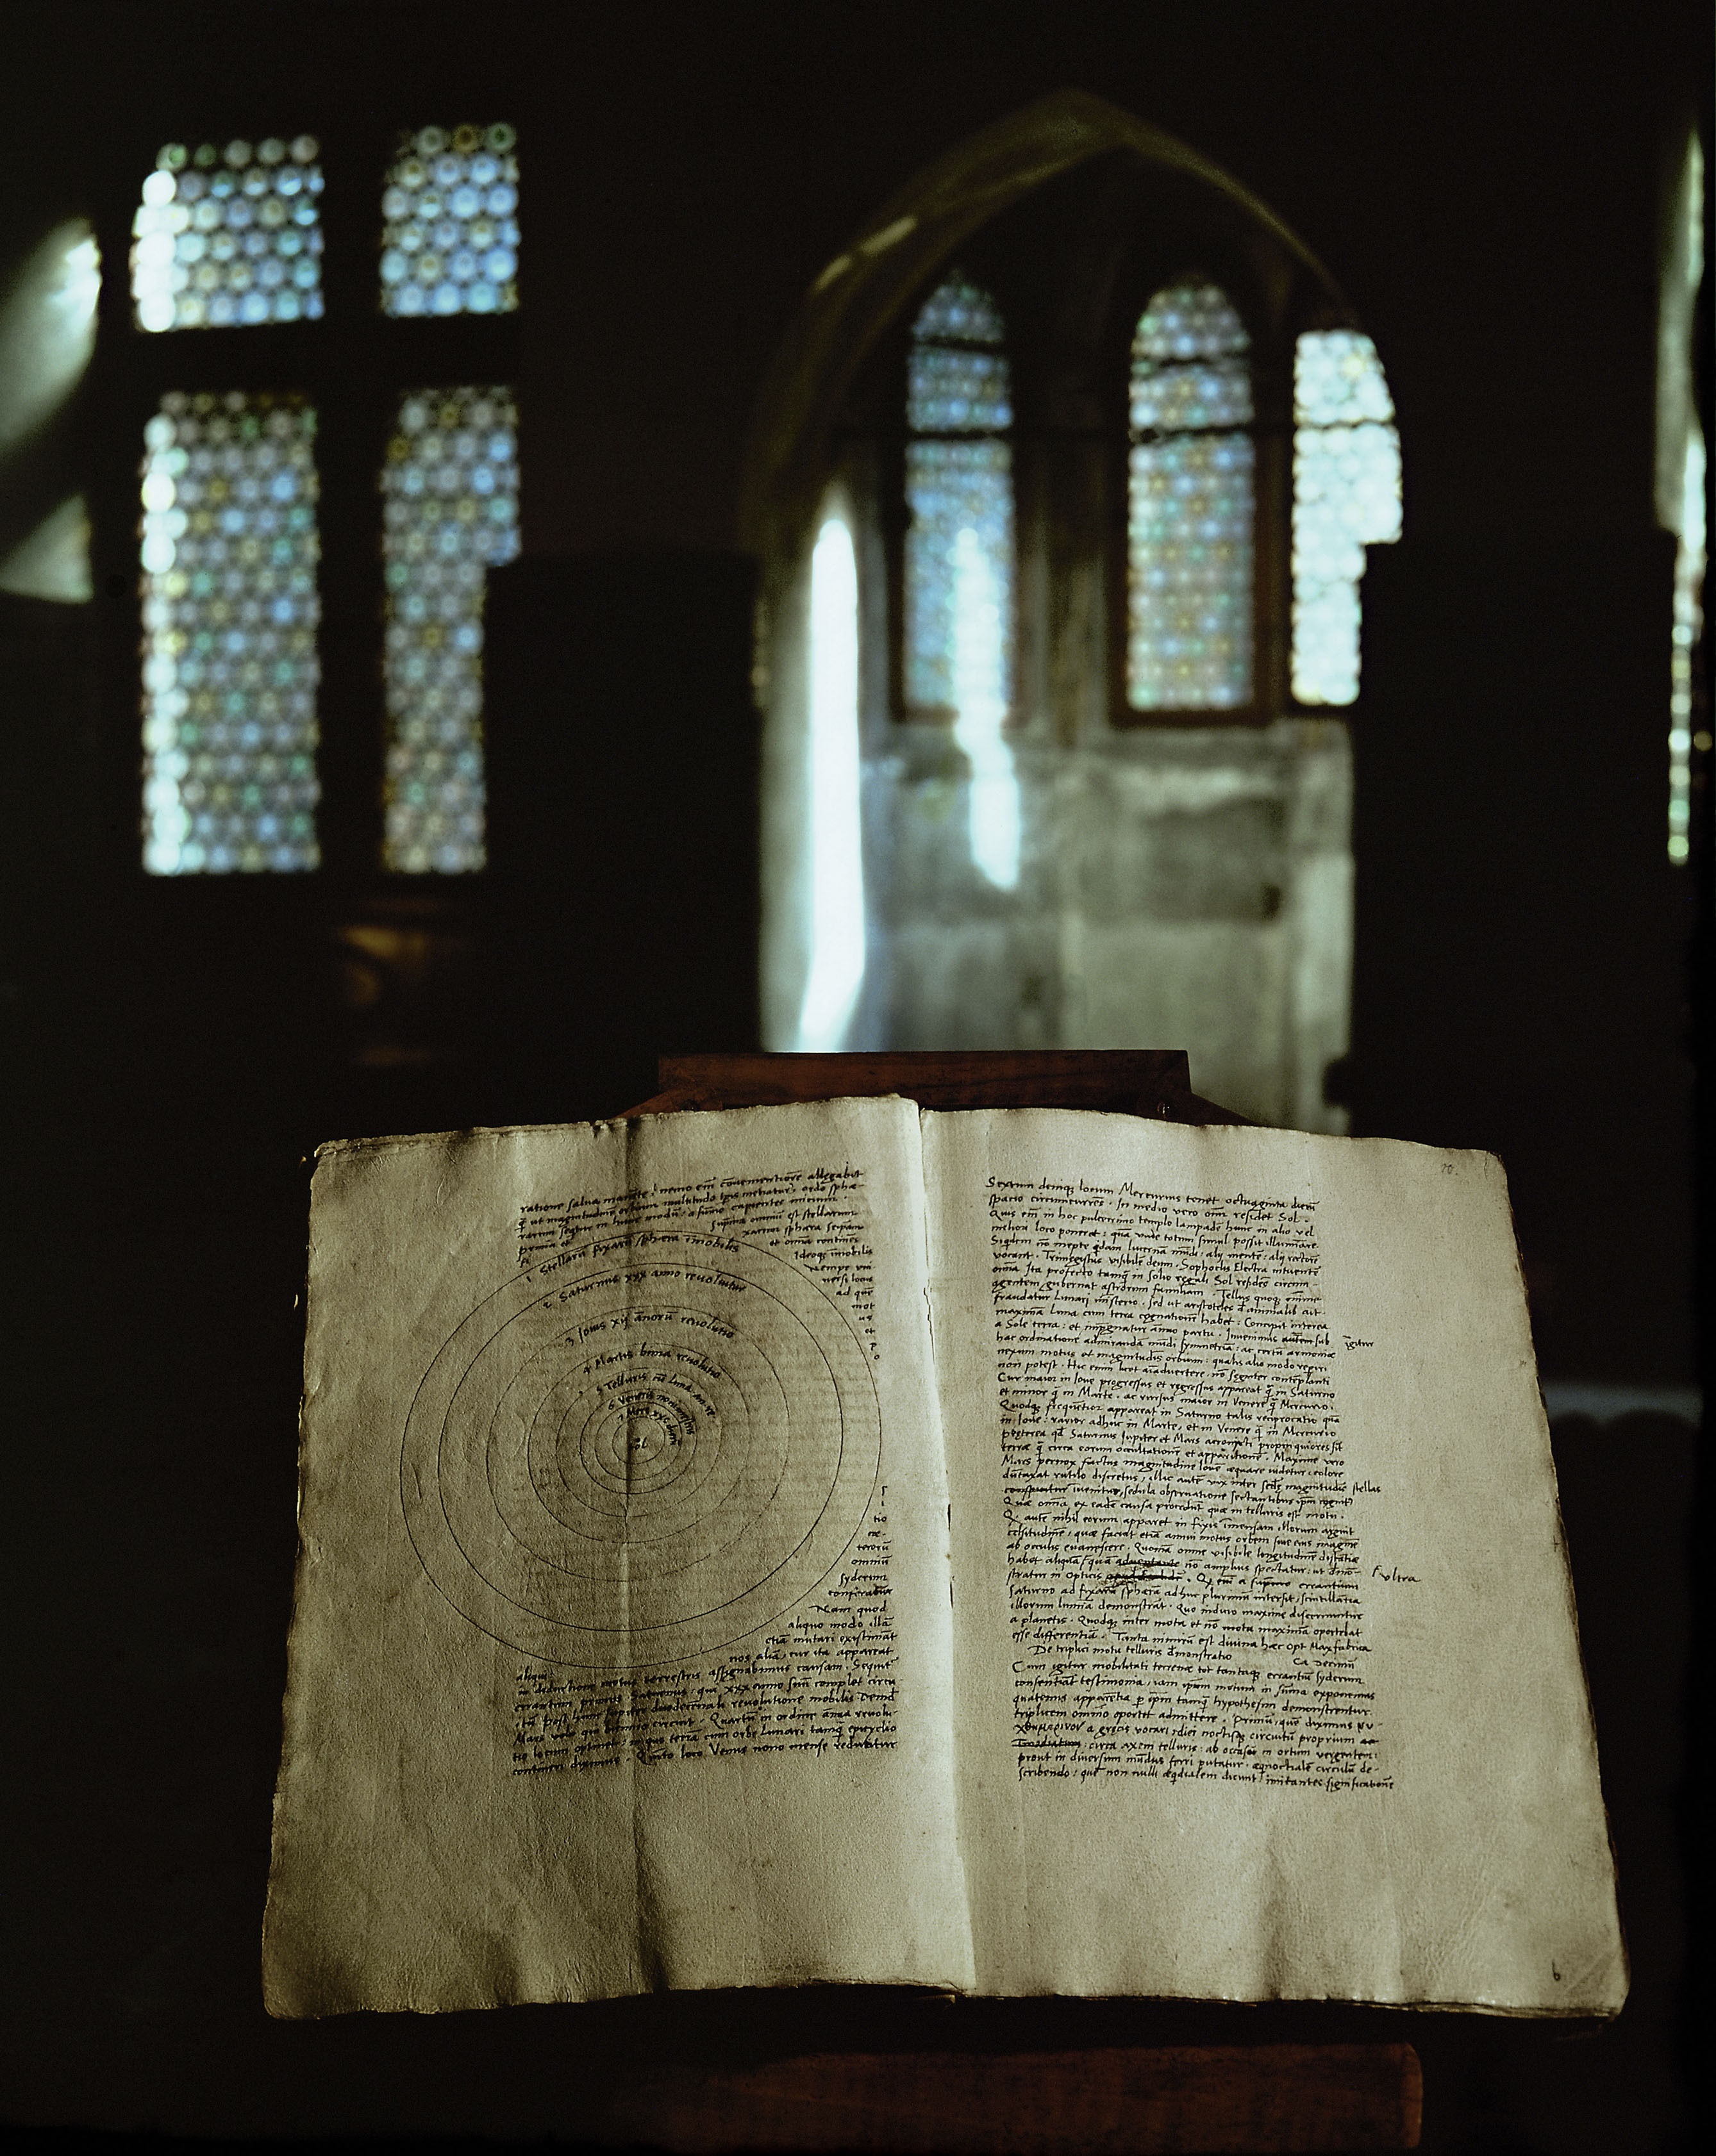 ratione salva manente, nemo em̄ convenientiorē allegabit
q̄ ut magnitudinē orbium multitudo tp̄is metiatur, ordo sphæ-
rarum sequitur in hunc modū: a summo capientes initium.
prima et suprema omniū est stellarum
fixarum sphæra seipsam
et omnia continēs
Ideoqȝ īmobilis
nempe uni
versi locus
ad quē
mot
us
et
1 Stellarū fixarū sphæra īmobilis
2 Saturnus xxx anno revolvitur
3 Iovis xij annorū revolutio
4 Martis bima revolutio
5 Telluris cū Luna an. re
6 Veneris nonimestris
7 Merc xxc dierū
Sol
tio
cæ-
terorū
omniū
syderum
conferatur
Nam quod
aliquo modo illā
etiā mutari existimāt
aliqui: nos aliā, cur ita appareat
in deductione motus terrestris assignabimus causam. Sequit᷑
errantium primus Saturnus: qui xxx anno suū complet circu
itū post hunc Iupiter duodecennali revolutione mobilis Deinde
Mars velo qui biennio circuit. Quartū in ordine annua revolu-
tio locum optinet: in quo terrā cum orbe Lunari tamqȝ epicyclio
contineri diximus. Quinto loco Venus nono mense reducitur
70.
Sextum deniqȝ locum Mercurius tenet octuaginta dierū
spacio circumcurrēs. In medio vero omī residet Sol.
Quis em̄ in hoc pulcerrimo templo lampadē hanc in alio vel
meliori loco poneret: quā unde totum simul possit illuminare.
Siqdem nō inepte qdam lucernā mūdi: alij mentē: alij rectorē
vocant. Trimegistus visibilē deum. Sophoclis Electra intuentē
omnia. Ita profecto tamqȝ in solio regali Sol residēs circum-
agentem gubernat astrorum familiam. Tellus quoqȝ minime
fraudatur Lunari ministerio. sed ut aristoteles d animalib ait.
maximā Luna cum terra cognationē habet: Concipit interea
a Sole terra: et impregnatur ānno partu. Invenimus autem sub igitur
hac ordinatione admirandā mūdi symmetriā: ac certū armoniæ
nexum motus et magnitudīs orbium: qualis alio modo reperiri
non potest. Hic enim licet aīadvertere, nō segniter contēplanti
Cur maior in Iove progressus et regressus appareat q̄ in Saturno
et minor q̄ in Marte. ac rursus maior in Venere q̄ Mercurio.
Quodqȝ frequētior appareat in Saturno talis reciprocatio qua
in Iove: rarior adhuc in Marte, et in Venere q̄ in Mercurio
Præterea qd̄ Saturnus Iupiter et Mars acronycti propinquiores sīt
terræ q̄ circa eorum occultationē et apparitionē. Maxime vero
Mars pernox factus magnitudine Iovē æquare videtur: colore
dūtaxat rutilo discretus, illic autē vix inter secūdæ magnitudīs stellas
invenitur, sedula observatione sectantibus
Quæ omīa ex eadē causa procedūt quæ in telluris est motu.
Q autē nihil eorum apparet in fixis īmensam illorum arguit
celsitudinē, quæ faciat etiā annui motus orbem sive eius imaginē
ab oculis evanescere. Quoniā omne visibile longitudinē distātiæ
habet aliquā / quā nō amplius spectatur: ut dmō- / ultra
stratur in Opticis. Q em̄ a supremo errantium
Saturno ad fixarū sphærā adhuc plurimū intersit, scintillātia
illorum lumīa demonstrāt. Quo indicio maxime discernuntur
a planetis. Quodqȝ inter mota et nō mota maximā oportebat
esse differentiā. Tanta nimirū est divina hæc Opt Max fabrica
De triplici motu telluris dmonstratio Ca Decimū
Cum igitur mobilitati terrenæ tot tantaqȝ errantiū syderum
consentiāt testimonia, iam ipsum motum in sūma exponemus
quatenus apparētia p ipm tamqȝ hypothesim demonstrentur.
triplicem omīno oportet admittere. Primū, quē diximus νυ-
χθημερινον a græcis vocari: diei noctisqȝ circuitū proprium
circa axem telluris: ab occasu in ortum vergentem:
prout in diversum mūdus ferri putatur. æqnoctialē circulū de-
scribendo: quē non nulli æqdialem dicunt imitantes significationē
b